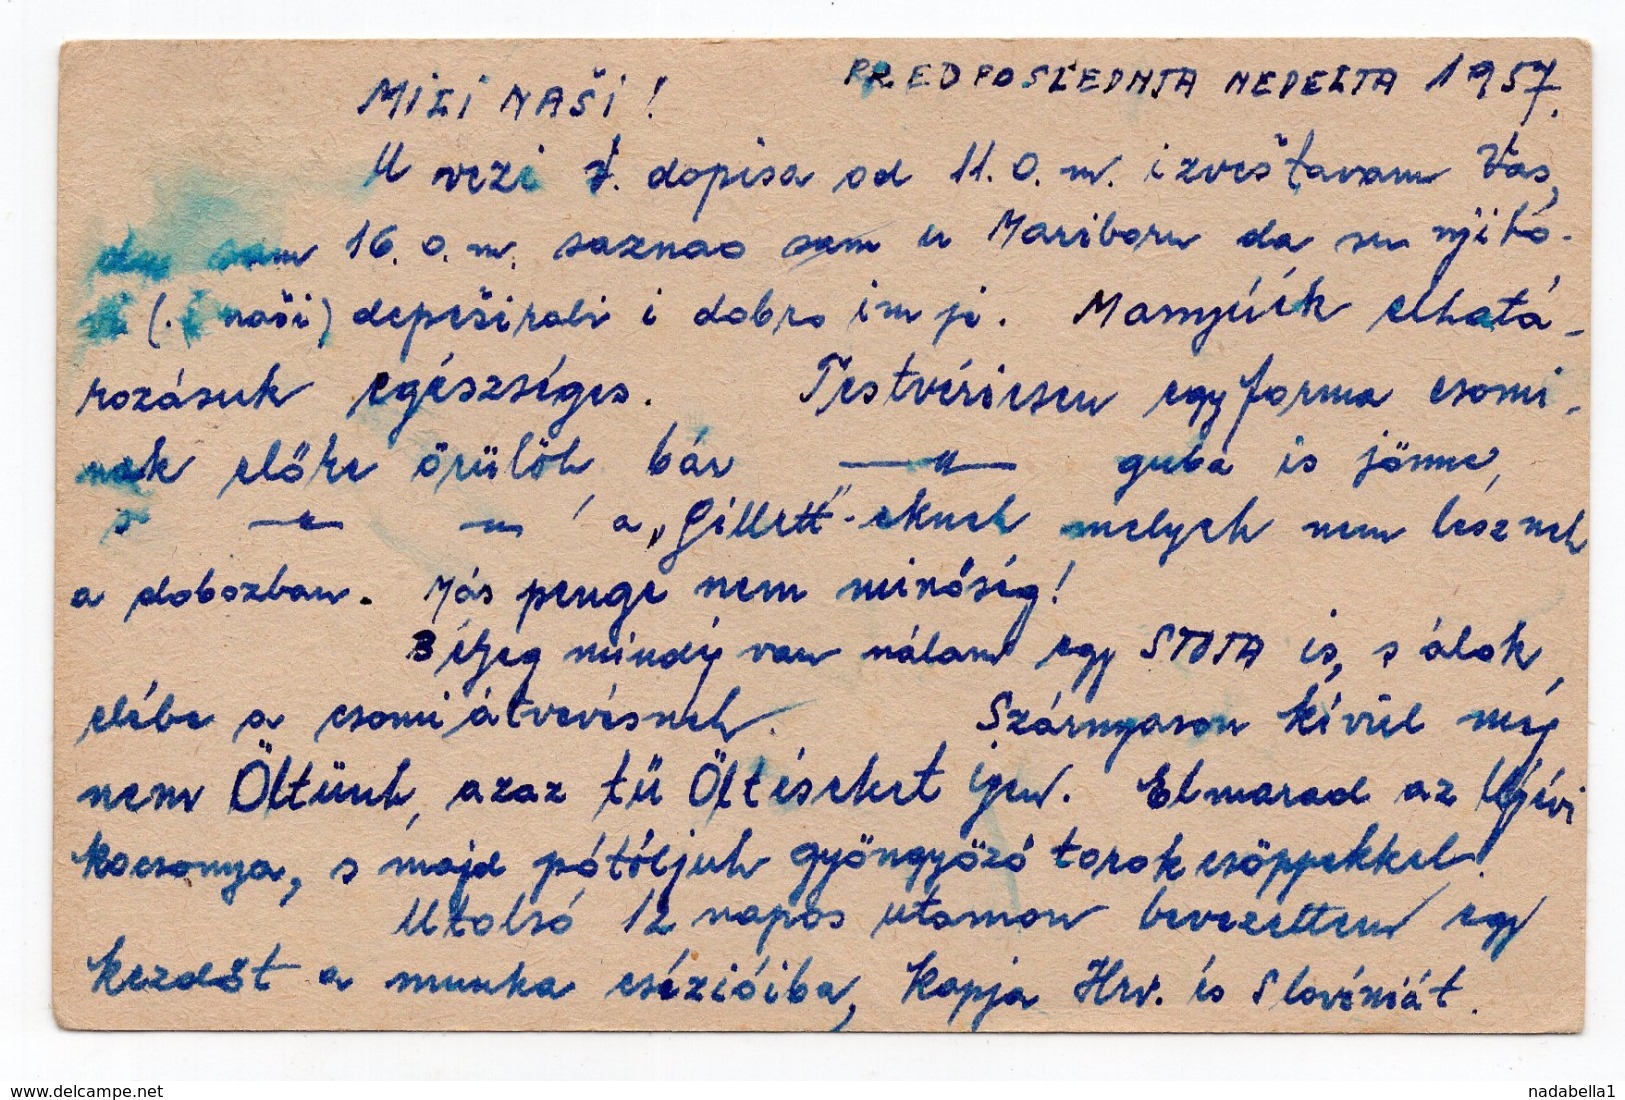 PREDPOSLEDNJA NEDELJA 1957.
MILI NAŠI!
U vezi V. dopisa od 11. o. m. izveštavam Vas,
da sam 16. o. m. saznao sam u Mariboru da su njiho-
vi (. i naši) depeširali i dobro im je. Manyiék elhatá-
rozásuk egészséges. Testvériesen egyforma csomi-
nak előre örülök bár —〃— guba is jönne,
s —〃— 〃 a „Gillett"-eknek melyek nem lésznek
a dobozban. Más penge nem minőség!
Béljeg mindíg van nálam egy STOTA is, s álok
elébe a csomi átvevésnek. Szárnyason kívül még
nem Öltünk, azaz tű Öltéseket igen. Elmarad az Újévi
kocsonya, s majd pótóljuk gyöngyöző torok csöppekkel!
Utolsó 12 napos utamon bevezettem egy
kezdőt a munka csízióiba, kapja Hrv. és Slovéniát.
www.delcampe.net
nadabella1